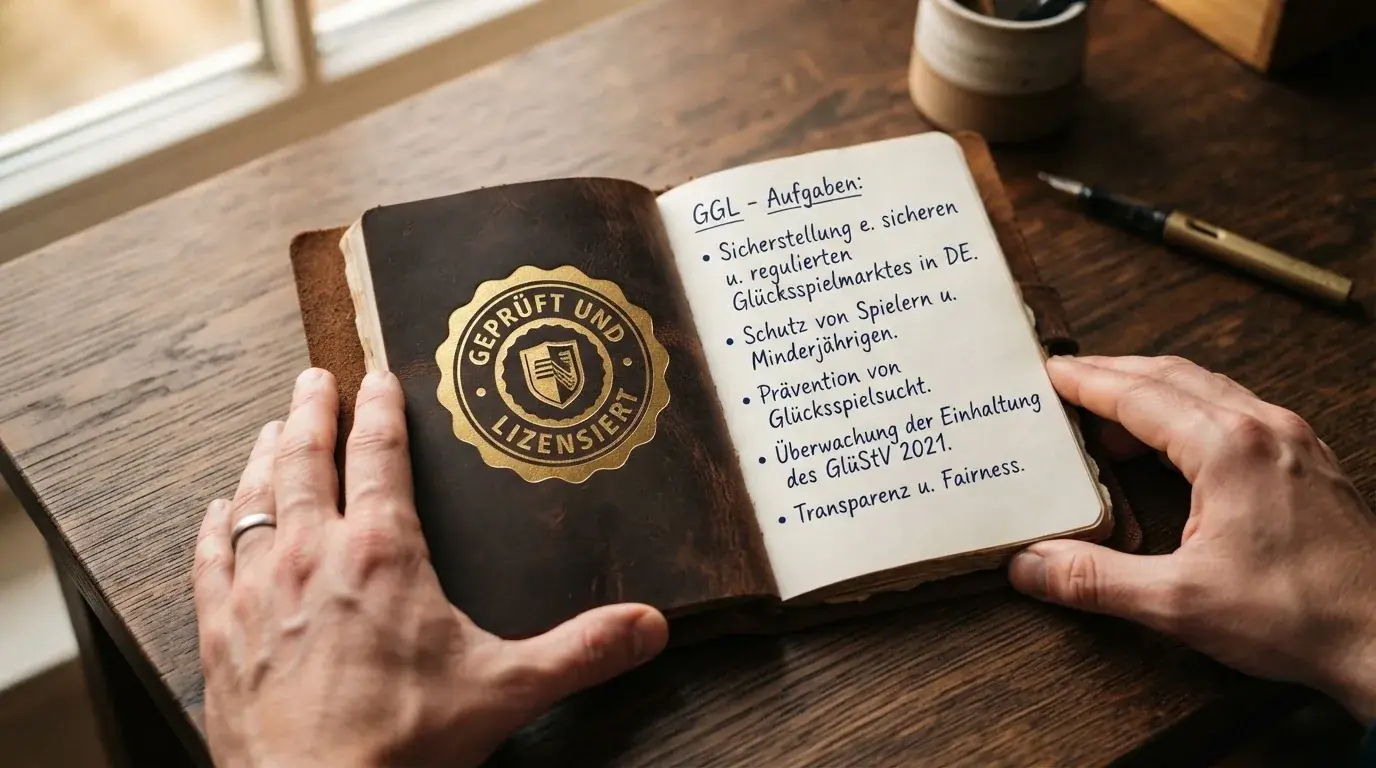 GEPRÜFT UND
LIZENSIERT
GGL - Aufgaben:
• Sicherstellung e. sicheren
u. regulierten
Glücksspielmarktes in DE.
• Schutz von Spielern u.
Minderjährigen.
• Prävention von
Glücksspielsucht.
• Überwachung der Einhaltung
des GlüStV 2021.
• Transparenz u. Fairness.